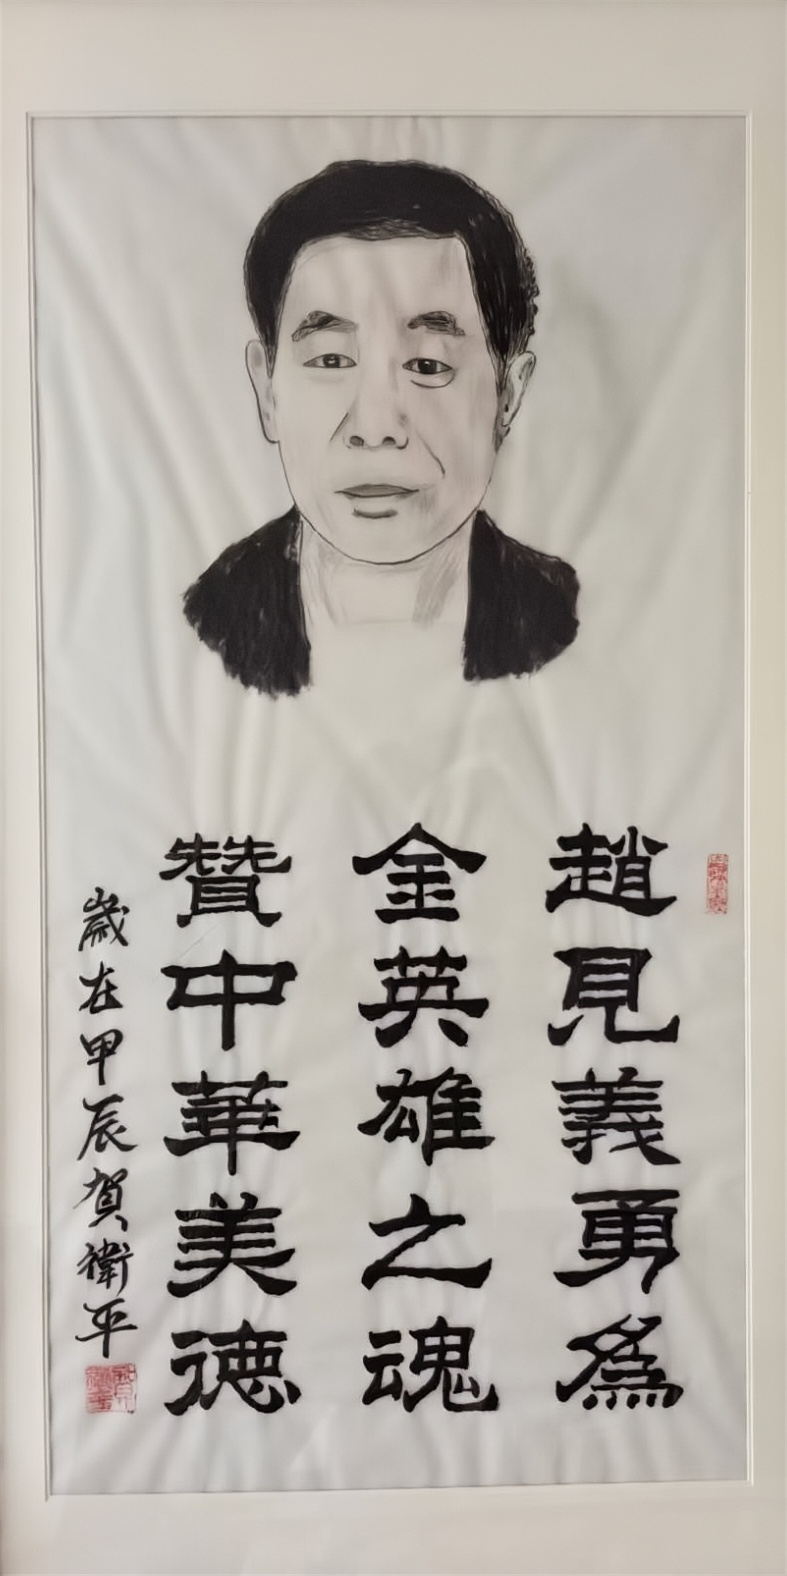 趙見義勇為
金英雄之魂
贊中華美德
歲在甲辰賀衛平